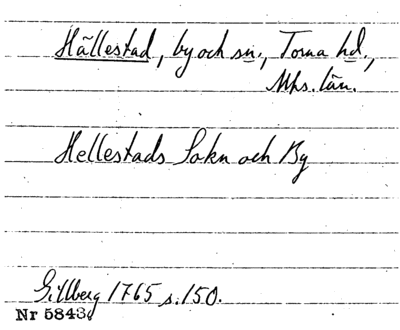 Hällestad, by och sn., Torna hd.,
Mhs. län.
Hellestads Sokn och By
Gillberg 1765 s. 150.
Nr 5843